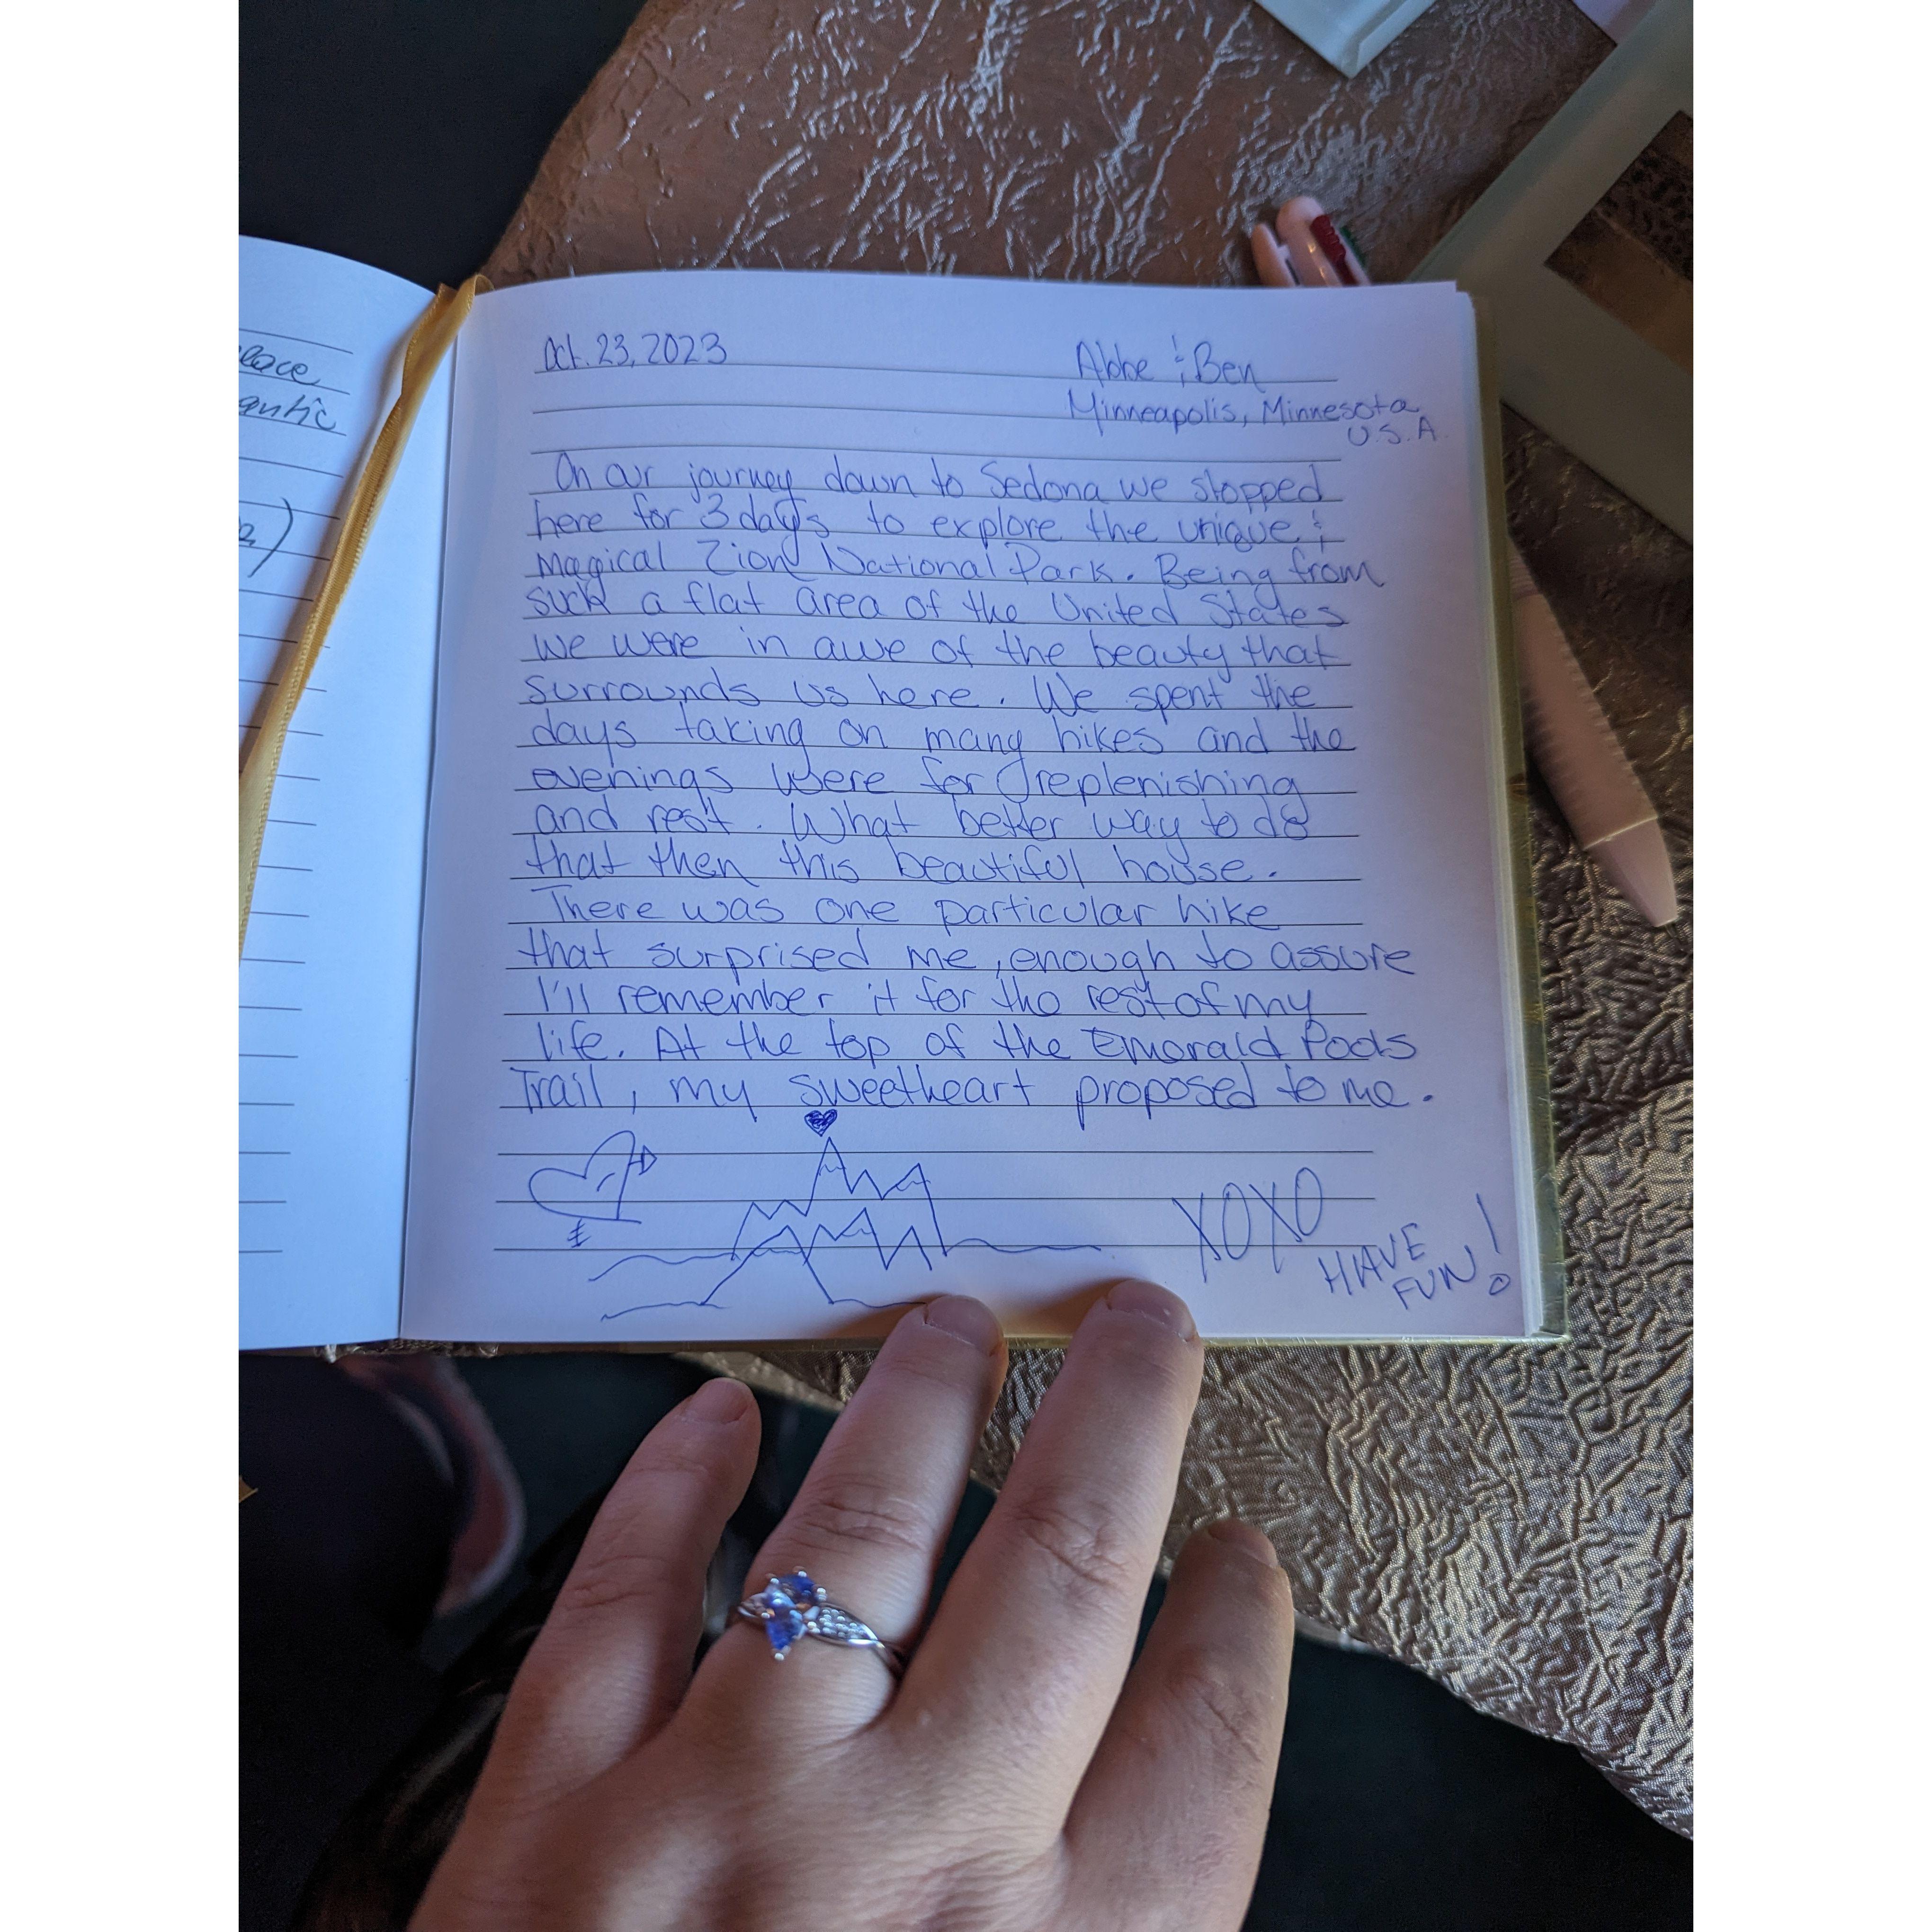 lace
antic
Oct. 23, 2023
Abbe & Ben
Minneapolis, Minnesota
U.S.A.
On our journey down to Sedona we stopped
here for 3 days to explore the unique &
Magical Zion National Park. Being from
such a flat area of the United States
we were in awe of the beauty that
surrounds us here. We spent the
days taking on many hikes and the
evenings were for replenishing
and rest. What better way to do
that then this beautiful house.
There was one particular hike
that surprised me, enough to assure
I'll remember it for the rest of my
life. At the top of the Emerald Pools
Trail, my sweetheart proposed to me.
XOXO
HAVE
FUN!